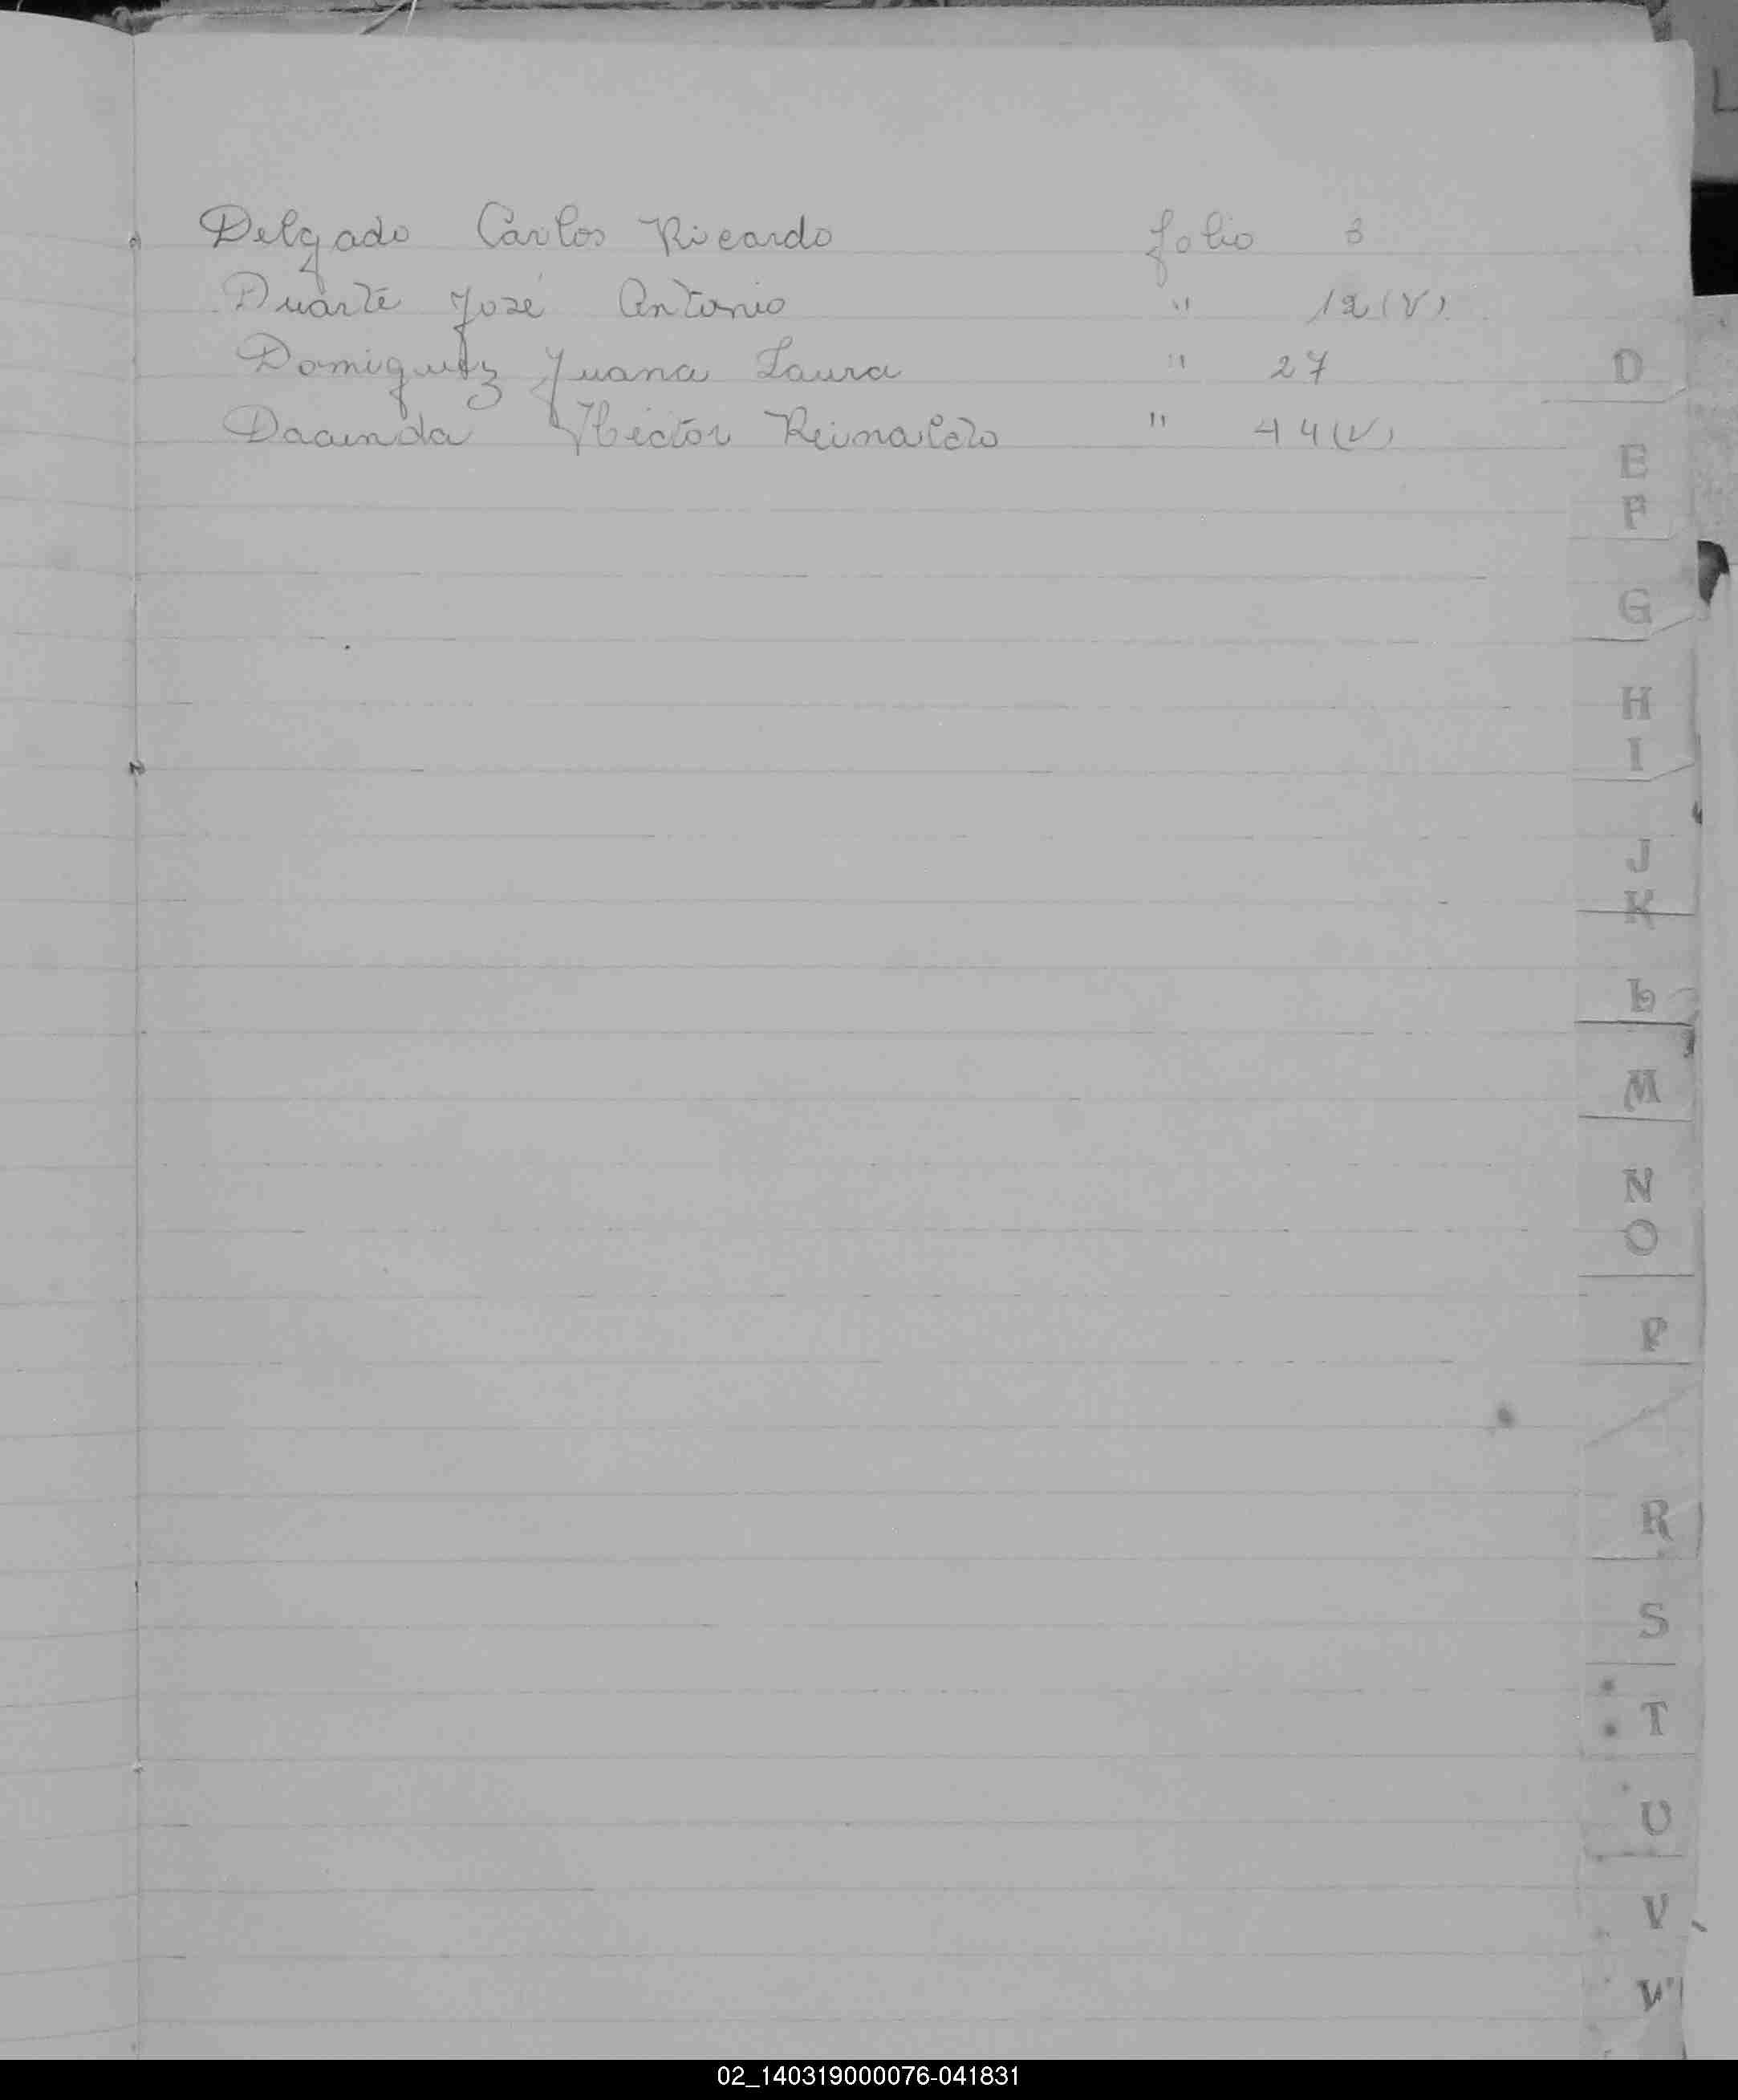 Delgado Carlos Ricardo folio 3
Duarte José Antonio " 12 (V)
Domiguez Juana Laura " 27
Dacunda Hector Reinaldo " 44 (V)
D
E
F
G
H
I
J
K
L
M
N
O
P
R
S
T
U
V
W
02_140319000076-041831